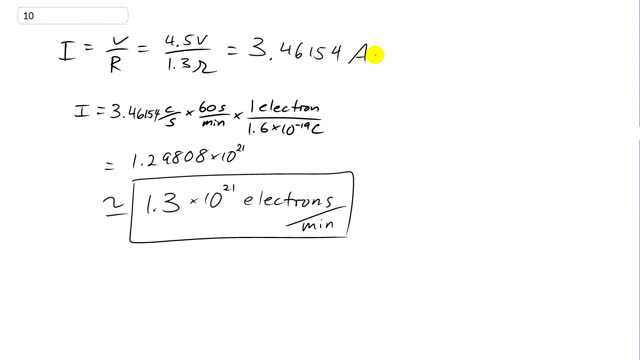 10
I = V/R = 4.5V/1.3Ω = 3.46154 A
I = 3.46154 C/S × 60s/min × 1 electron/1.6×10⁻¹⁹C
= 1.29808×10²¹
≃ 1.3 ×10²¹ electrons/min